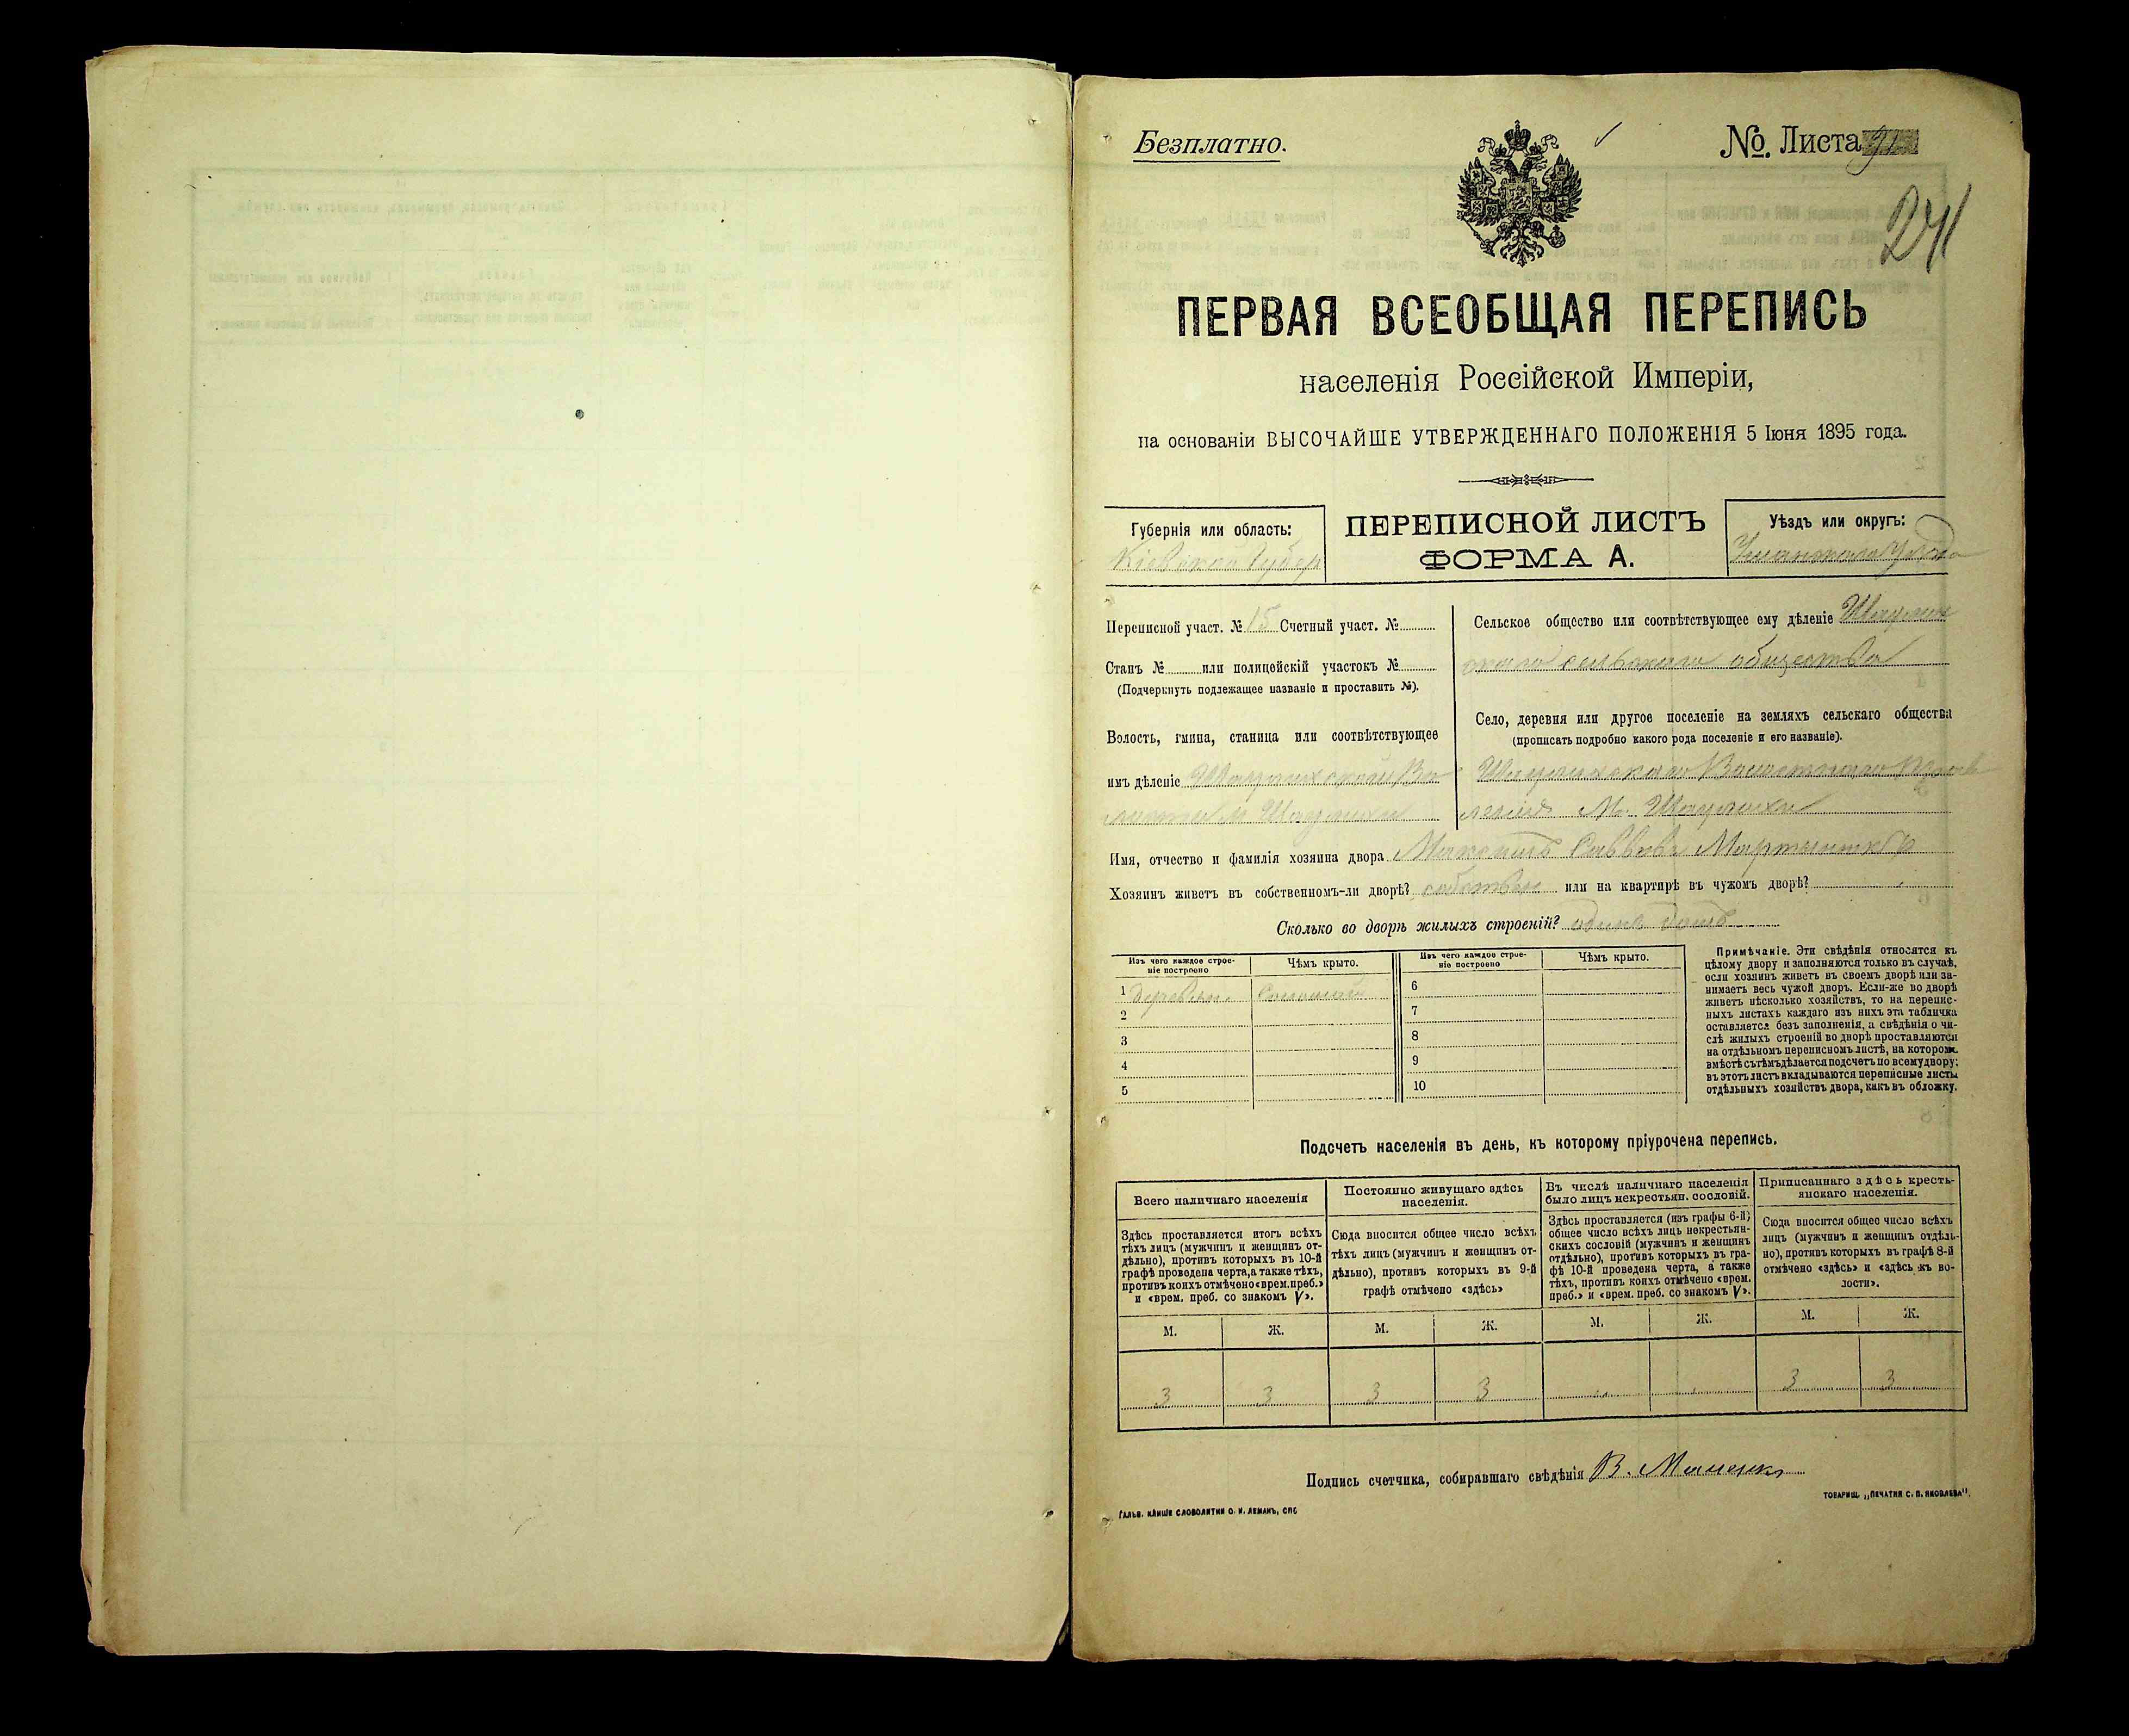 Безплатно.
№ Листа 91
241
ПЕРВАЯ ВСЕОБЩАЯ ПЕРЕПИСЬ
населенія Россійской Имперіи,
на основаніи ВЫСОЧАЙШЕ УТВЕРЖДЕННАГО ПОЛОЖЕНІЯ 5 Іюня 1895 года.
Губернія или область:
Кіевской Губер
ПЕРЕПИСНОЙ ЛИСТЪ
ФОРМА А.
Уѣздъ или округъ:
Уманскаго Уѣзда
Переписной участ. № 15 Счетный участ. №
Станъ № или полицейскій участокъ №
(Подчеркнуть подлежащее названіе и проставить №).
Волость, гмина, станица или соотвѣтствующее
имъ дѣленіе
Сельское общество или соотвѣтствующее ему дѣленіе
скаго сельскаго общества
Село, деревня или другое поселеніе на земляхъ сельскаго общества
(прописать подробно какого рода поселеніе и его названіе).
Имя, отчество и фамилія хозяина двора Максимъ Саввовъ
Хозяинъ живетъ въ собственномъ-ли дворѣ? собствен или на квартирѣ въ чужомъ дворѣ?
Сколько во дворѣ жилыхъ строеній? одинъ домъ
Изъ чего каждое строе-
ніе построено
Чѣмъ крыто.
Изъ чего каждое строе-
ніе построено
Чѣмъ крыто.
1 деревян. Соломой
2
3
4
5
6
7
8
9
10
Примѣчаніе. Эти свѣдѣнія относятся къ
цѣлому двору и заполняются только въ случаѣ,
если хозяинъ живетъ въ своемъ дворѣ или за-
нимаетъ весь чужой дворъ. Если-же во дворѣ
живетъ нѣсколько хозяйствъ, то на перепис-
ныхъ листахъ каждаго изъ нихъ эта табличка
оставляется безъ заполненія, а свѣдѣнія о чи-
слѣ жилыхъ строеній во дворѣ проставляются
на отдѣльномъ переписномъ листѣ, на которомъ
вмѣстѣ съ тѣмъ дѣлается подсчетъ по всему двору;
въ этотъ листъ вкладываются переписные листы
отдѣльныхъ хозяйствъ двора, какъ въ обложку.
Подсчетъ населенія въ день, къ которому пріурочена перепись.
Всего наличнаго населенія
Здѣсь проставляется итогъ всѣхъ
тѣхъ лицъ (мужчинъ и женщинъ от-
дѣльно), противъ которыхъ въ 10-й
графѣ проведена черта, а также тѣхъ,
противъ коихъ отмѣчено «врем. преб.»
и «врем. преб. со знакомъ V».
Постоянно живущаго здѣсь
населенія.
Сюда вносится общее число всѣхъ
тѣхъ лицъ (мужчинъ и женщинъ от-
дѣльно), противъ которыхъ въ 9-й
графѣ отмѣчено «здѣсь»
Въ числѣ наличнаго населенія
было лицъ некрестьян. сословій.
Здѣсь проставляется (изъ графы 6-й)
общее число всѣхъ лицъ некрестьян-
скихъ сословій (мужчинъ и женщинъ
отдѣльно), противъ которыхъ въ гра-
фѣ 10-й проведена черта, а также
тѣхъ, противъ коихъ отмѣчено «врем.
преб.» и «врем. преб. со знакомъ V».
Приписаннаго здѣсь кресть-
янскаго населенія.
Сюда вносится общее число всѣхъ
лицъ (мужчинъ и женщинъ отдѣль-
но), противъ которыхъ въ графѣ 8-й
отмѣчено «здѣсь» и «здѣсь къ во-
лости».
М. Ж. М. Ж. М. Ж. М. Ж.
3 3 3 3 3 3
Подпись счетчика, собиравшаго свѣдѣнія В.
ГАЛЬВ. КЛИШЕ СЛОВОЛИТНИ О. И. ЛЕМАНЪ, СПБ
ТОВАРИЩ. „ПЕЧАТНЯ С. П. ЯКОВЛЕВА".